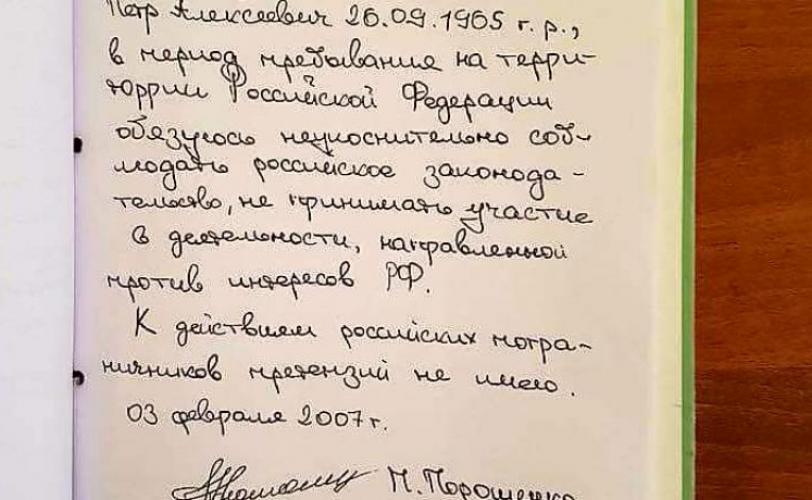 Петр Алексеевич 26.09.1965 г. р.,
в период пребывания на терри-
тюррии Российской Федерации
обязуюсь неукоснительно соб-
людать российское законода-
тельство, не принимать участие
в деятельности, направленной
против интересов РФ.
К действиям российских погра-
ничников претензий не имею.
03 февраля 2007 г.
П. Порошенко